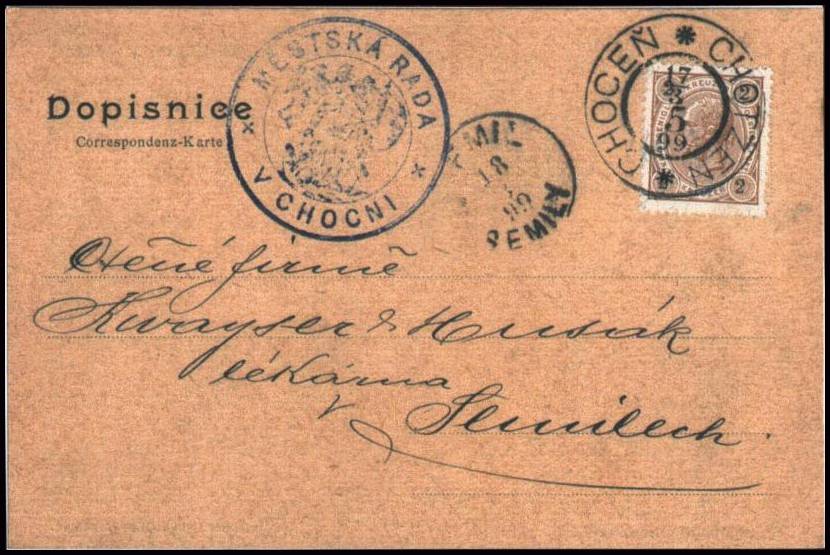 Dopisnice
Correspondenz-Karte
MĚSTSKÁ RADA
V CHOCNI
SEMIL
18
99
SEMILY
CHOCEŇ * CHOTZEN *
17
5
99
2 2
2
Ctěné firmě
Kwayser & Husák
lékárna
v Semilech.